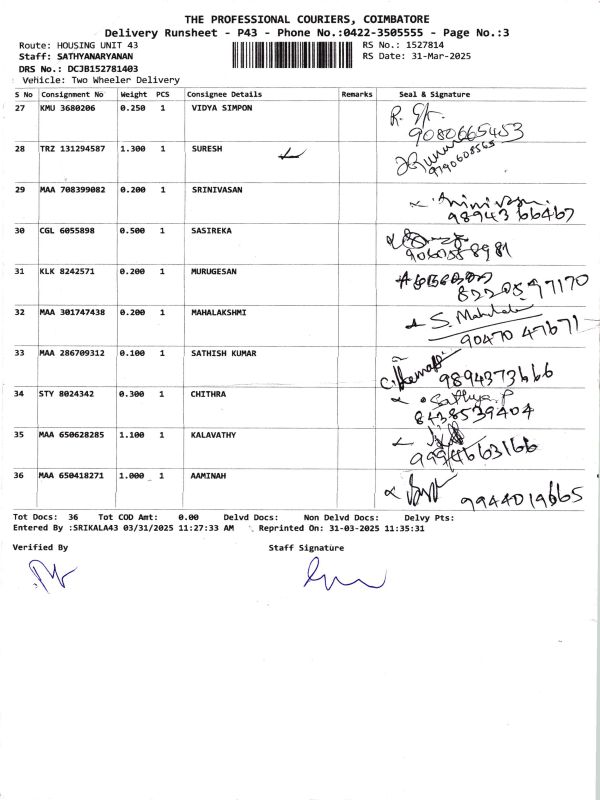 THE PROFESSIONAL COURIERS, COIMBATORE
Delivery Runsheet - P43 - Phone No.:0422-3505555 - Page No.:3
Route: HOUSING UNIT 43 RS No.: 1527814
Staff: SATHYANARYANAN RS Date: 31-Mar-2025
DRS No.: DCJB152781403
Vehicle: Two Wheeler Delivery
S No Consignment No Weight PCS Consignee Details Remarks Seal & Signature
27 KMU 3680206 0.250 1 VIDYA SIMPON
9080665453
28 TRZ 131294587 1.300 1 SURESH
9790608565
29 MAA 708399082 0.200 1 SRINIVASAN
98943 66467
30 CGL 6055898 0.500 1 SASIREKA
31 KLK 8242571 0.200 1 MURUGESAN
82205 97170
32 MAA 301747438 0.200 1 MAHALAKSHMI
S. Mahalakshmi
90470 47671
33 MAA 286709312 0.100 1 SATHISH KUMAR
9894373666
34 STY 8024342 0.300 1 CHITHRA
Sathya. P
8438539404
35 MAA 650628285 1.100 1 KALAVATHY
9994663166
36 MAA 650418271 1.000 1 AAMINAH
9944019665
Tot Docs: 36 Tot COD Amt: 0.00 Delvd Docs: Non Delvd Docs: Delvy Pts:
Entered By :SRIKALA43 03/31/2025 11:27:33 AM Reprinted On: 31-03-2025 11:35:31
Verified By Staff Signature